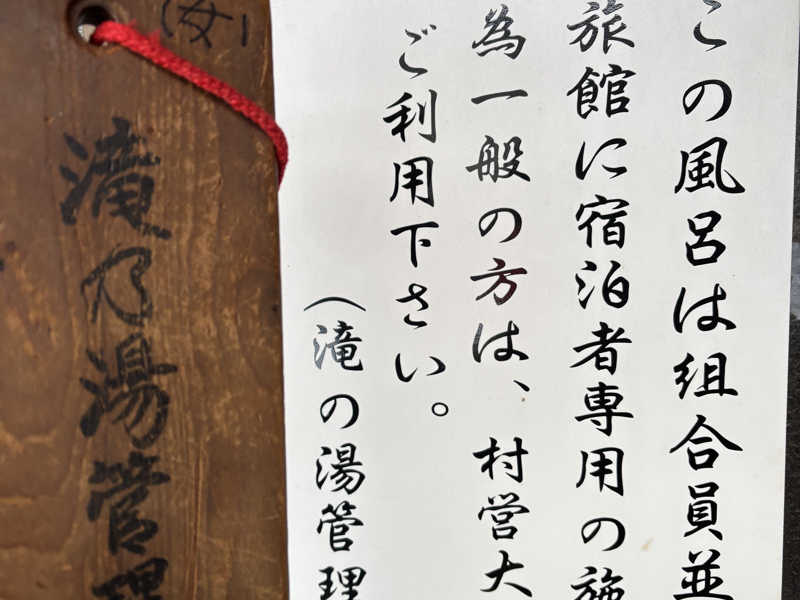 この風呂は組合員並
旅館に宿泊者専用の施
為一般の方は、村営大
ご利用下さい。
(滝の湯管理
(女)
滝乃湯管理